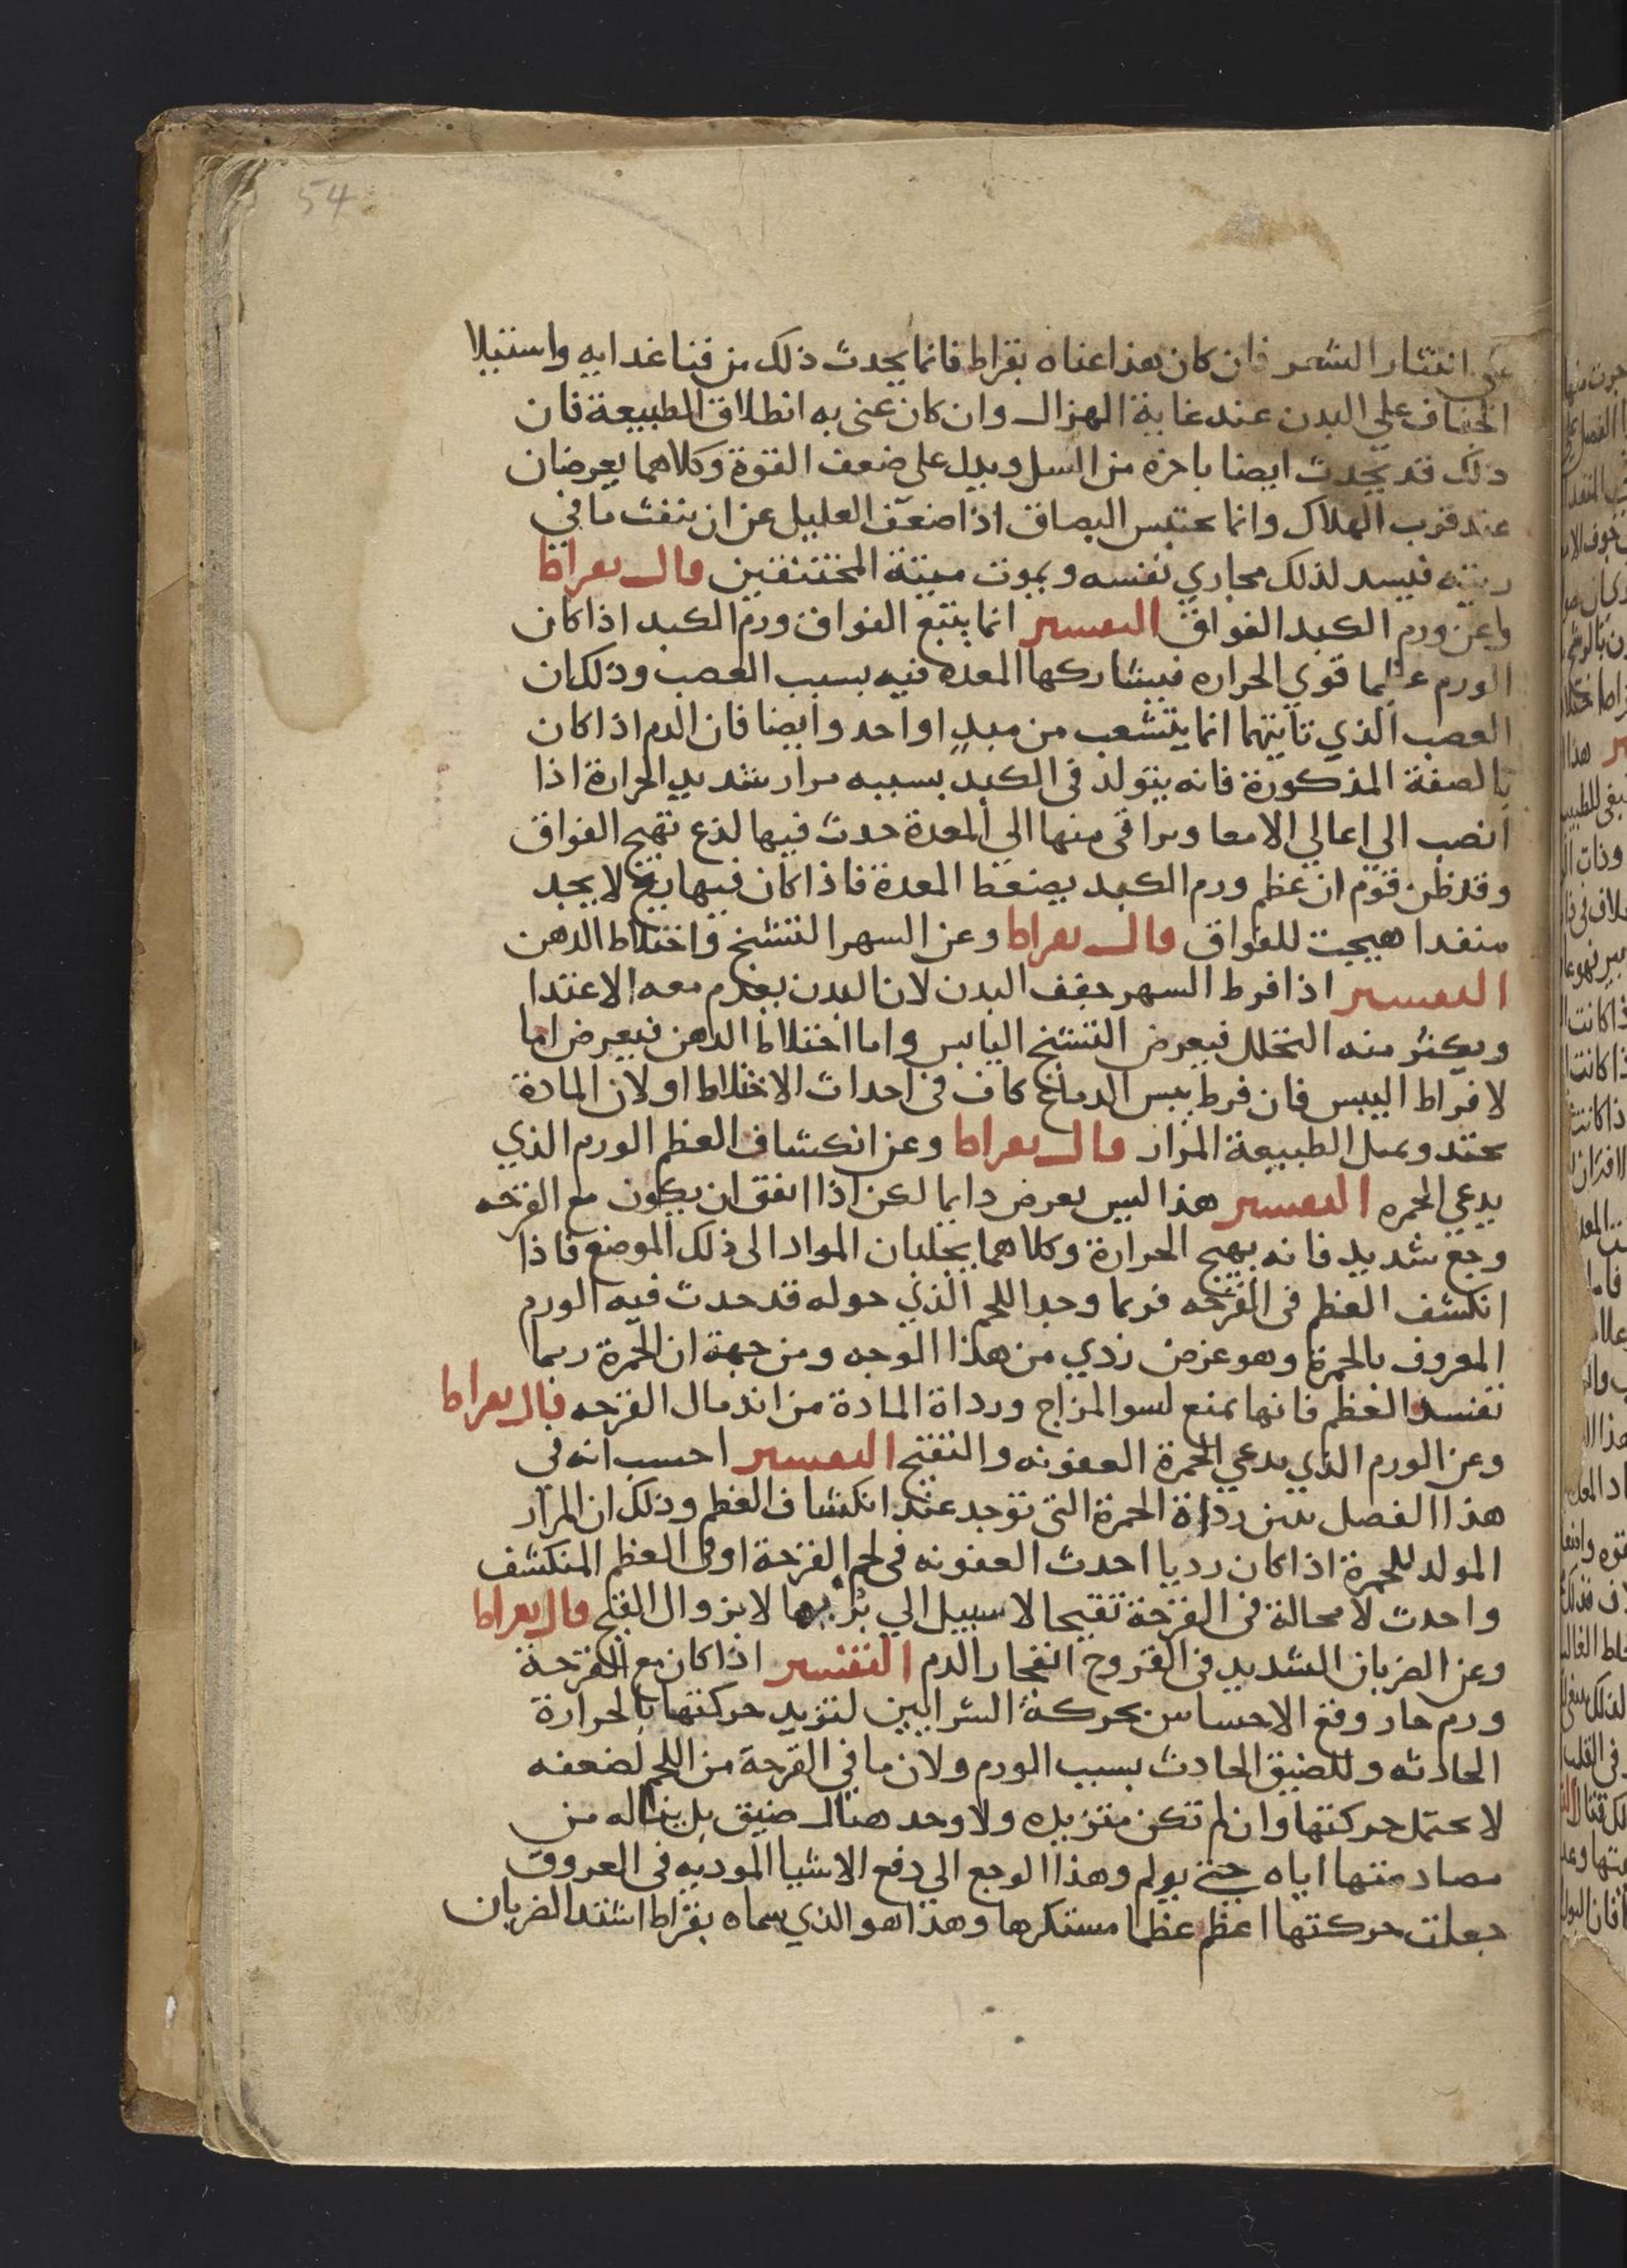 54
على انتثار الشعر فان كان هذا عناه بقراط فانما يحدث ذلك من فنا غدايه واستيلا
الجفاف علي البدن عند غاية الهزال وان كان عنى به انطلاق الطبيعة فان
ذلك قد يحدث ايضا باخرة من السل ويدل على ضعف القوة وكلاهما يعرضان
عند قرب الهلاك وانما يحتبس البصاق اذا ضعف العليل عن ان ينفث ما في
ريته فيسد لذلك مجاري نفسه ويموت ميتة المختنقين قال بقراط
وعن ورم الكبد الفواق التفسير انما يتبع الفواق ورم الكبد اذا كان
الورم عظيما قوي الحراره فيشاركها المعده فيه بسبب العصب وذلك ان
العصب الذي تاتيهما انما يتشعب من مبدٍ اواحد وايضا فان الدم اذا كان
بالصفة المذكورة فانه يتولد في الكبد بسببه مرار شديد الحرارة اذا
انصب الي اعالي الامعا وتراقى منها الى المعدة حدث فيها لذع تهيج الفواق
وقد ظن قوم ان عظم ورم الكبد يضغط المعدة فاذا كان فيها ريح لا يجد
منفدا هيجت للفواق قال بقراط وعن السهر التشنج واختلاط الذهن
التفسير اذا فرط السهر جفف البدن لان البدن يعدم معه الاغتدا
ويكثر منه التحلل فيعرض التشنج اليابس واما اختلاط الدهن فيعرض اما
لافراط اليبس فان فرط يبس الدماغ كاف في احداث الاختلاط او لان المادة
تحتد وتميل الطبيعة المرار قال بقراط وعن انكشاف العظم الورم الذي
يدعي الحمره التفسير هذا ليس يعرض دايما لكن اذا اتفق ان يكون مع القرحه
وجع شديد فانه يهيج الحرارة وكلاهما يجلبان المواد الى ذلك الموضع فاذا
انكشف العظم في القرحه فربما وجد اللحم الذي حوله قد حدث فيه الورم
المعروف بالحمرة وهو عرض ردي من هذا الوجه ومن جهة ان الحمرة ربما
تفسد العظم فانها تمنع لسو المزاج ورداة المادة من اندمال القرحه قال بقراط
وعن الورم الذي يدعي الحمرة العفونه والتقيح التفسير احسب انه في
هذا الفصل يبين رداة الحمرة التى توجد عند انكشاف العظم وذلك ان المرار
المولد للحمرة اذا كان رديا احدث العفونه في لحم القرحة او في العظم المنكشف
واحدث لا محالة في القرحة تقيحا لا سبيل الي بربها لا بزوال القيح قال بقراط
وعن الضربان الشديد في القروح انفجار الدم التفسير اذا كان مع القرحة
ورم حار وقع الاحساس بحركة الشرايين لتزيد حركتها بالحرارة
الحادثه وللضيق الحادث بسبب الورم ولان ما في القرحة من اللحم لضعفه
لا يحتمل حركتها وان لم تكن متزيده ولا وجد هناك ضيق بل يناله من
مصادمتها اياه حتى يولم وهذا الوجع الي دفع الاشيا الموديه في العروق
جعلت حركتها اعظم عظما مستكرها وهذا هو الذي سماه بقراط اشتد الضربان